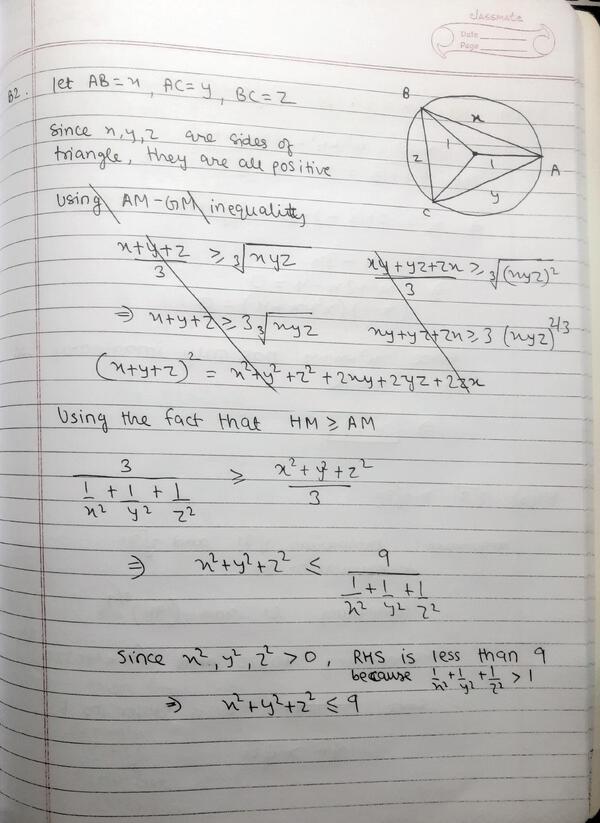 classmate
Date
Page
B2. let AB = x, AC = y, BC = z
since x, y, z are sides of
triangle, they are all positive
Using AM-GM inequality
(x+y+z)/3 ≥ ∛(xyz)
(xy+yz+zx)/3 ≥ ∛((xyz)²)
⇒ x+y+z ≥ 3∛(xyz)
xy+yz+zx ≥ 3 (xyz)^(2/3)
(x+y+z)² = x²+y²+z²+2xy+2yz+2zx
Using the fact that HM ≥ AM
3/(1/x² + 1/y² + 1/z²) ≥ (x²+y²+z²)/3
⇒ x²+y²+z² ≤ 9/(1/x² + 1/y² + 1/z²)
Since x², y², z² > 0, RHS is less than 9
because 1/x² + 1/y² + 1/z² > 1
⇒ x²+y²+z² ≤ 9
B
x
1
z
1
A
y
C